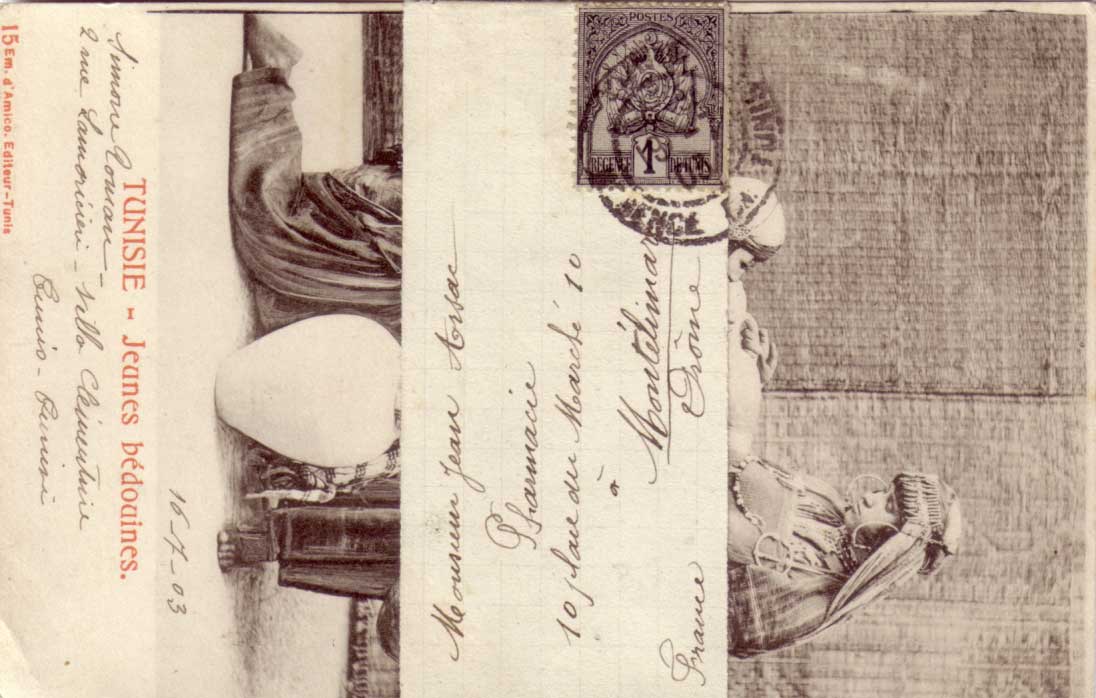 POSTES
1
REGENCE DE TUNIS
Monsieur Jean Arsac
Pharmacie
10 place du Marché 10
à
Montélimar
Drôme
France
TUNISIE - Jeunes bédouines.
16-7-03
Simone
2 rue Lamoricière - Villa Clémentine
Tunis - Tunisie
15 Em. d'Amico. Editeur-Tunis